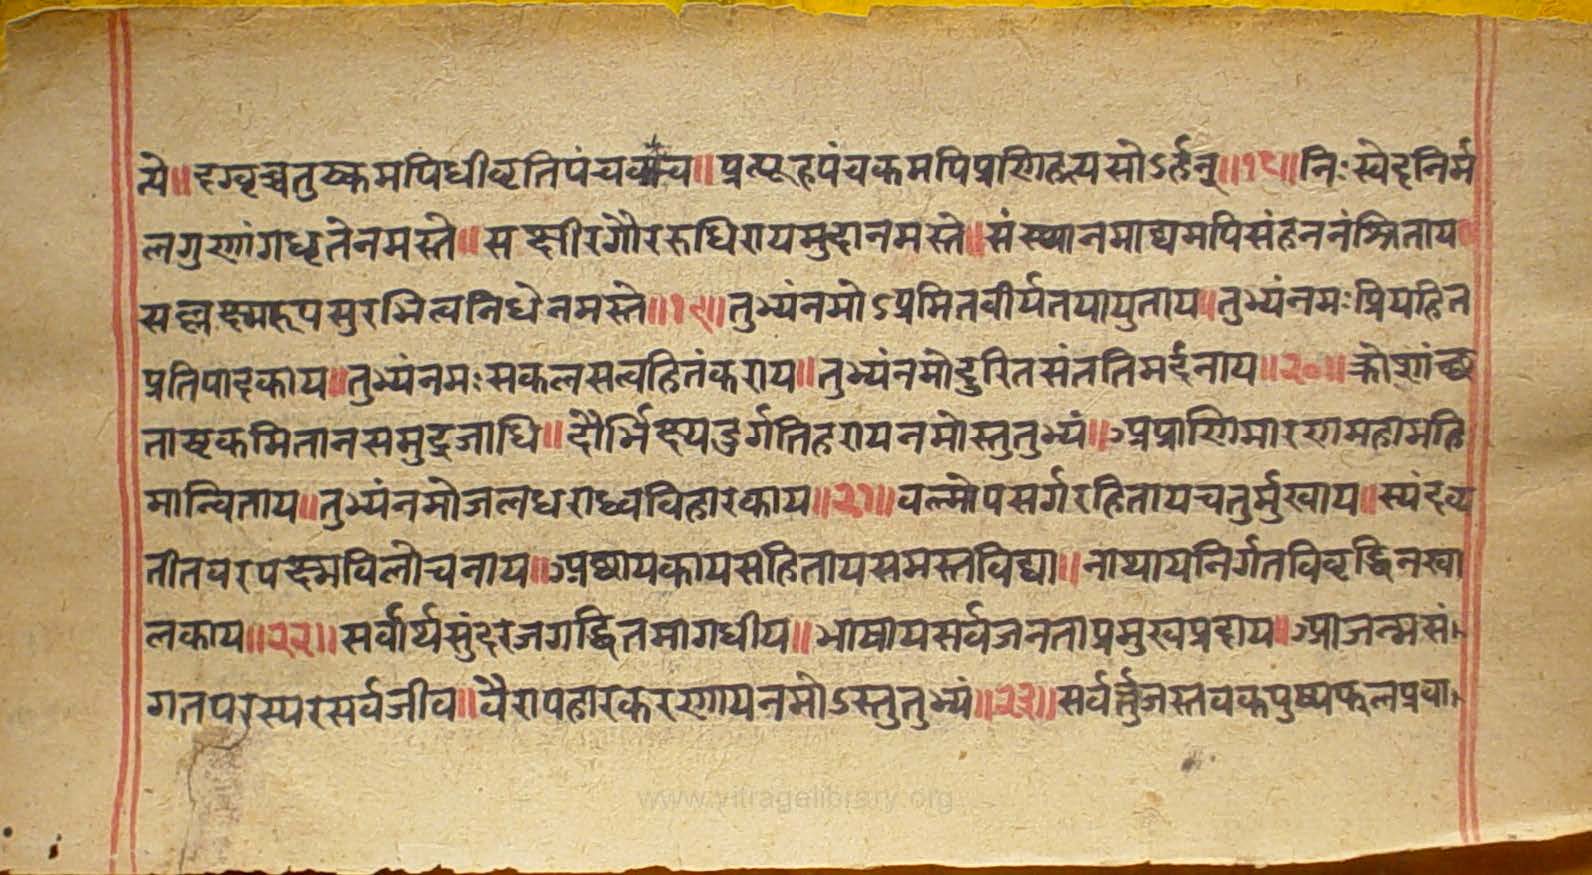 त्ये॥दृग्वृच्चतुष्कमपिधीवृतिपंचकंच॥प्रत्यूहपंचकमपिप्रणिहत्यसोऽर्हन्॥१८॥निःस्वेदनिर्म
लगुणांगधृतेनमस्ते॥सत्क्षीरगौररुधिरायमुदानमस्ते॥संस्थानमाद्यमपिसंहननंश्रिताय॥
सल्लक्ष्मरूपसुरभित्वनिधेनमस्ते॥१९॥तुभ्यंनमोऽप्रमितवीर्यतयायुताय॥तुभ्यंनमःप्रियहित
प्रतिपादकाय॥तुभ्यंनमःसकलसत्वहितंकराय॥तुभ्यंनमोदुरितसंततिमर्दनाय॥२०॥क्रोशांच्छ
ताष्टकमितानसमुद्रजाधि॥दौर्भिक्ष्यदुर्गतिहरायनमोस्तुतुभ्यं॥अप्राणिमारणमहामहि
मान्विताय॥तुभ्यंनमोजलधराध्वविहारकाय॥२१॥वल्भोपसर्गरहितायचतुर्मुखाय॥स्पंदव्य
तीतवरपक्ष्मविलोचनाय॥अछायकायसहितायसमस्तविद्या॥नाथायनिर्गतविवृद्धिनखा
लकाय॥२२॥सर्वार्थसुंदरजगद्धितमागधीय॥भाषायसर्वजनताप्रमुखप्रदाय॥आजन्मसं
गतपरस्परसर्वजीव॥वैरापहारकरणायनमोऽस्तुतुभ्यं॥२३॥सर्वर्त्तुजस्तवकपुष्पफलप्रवा
www.vitragelibrary.org